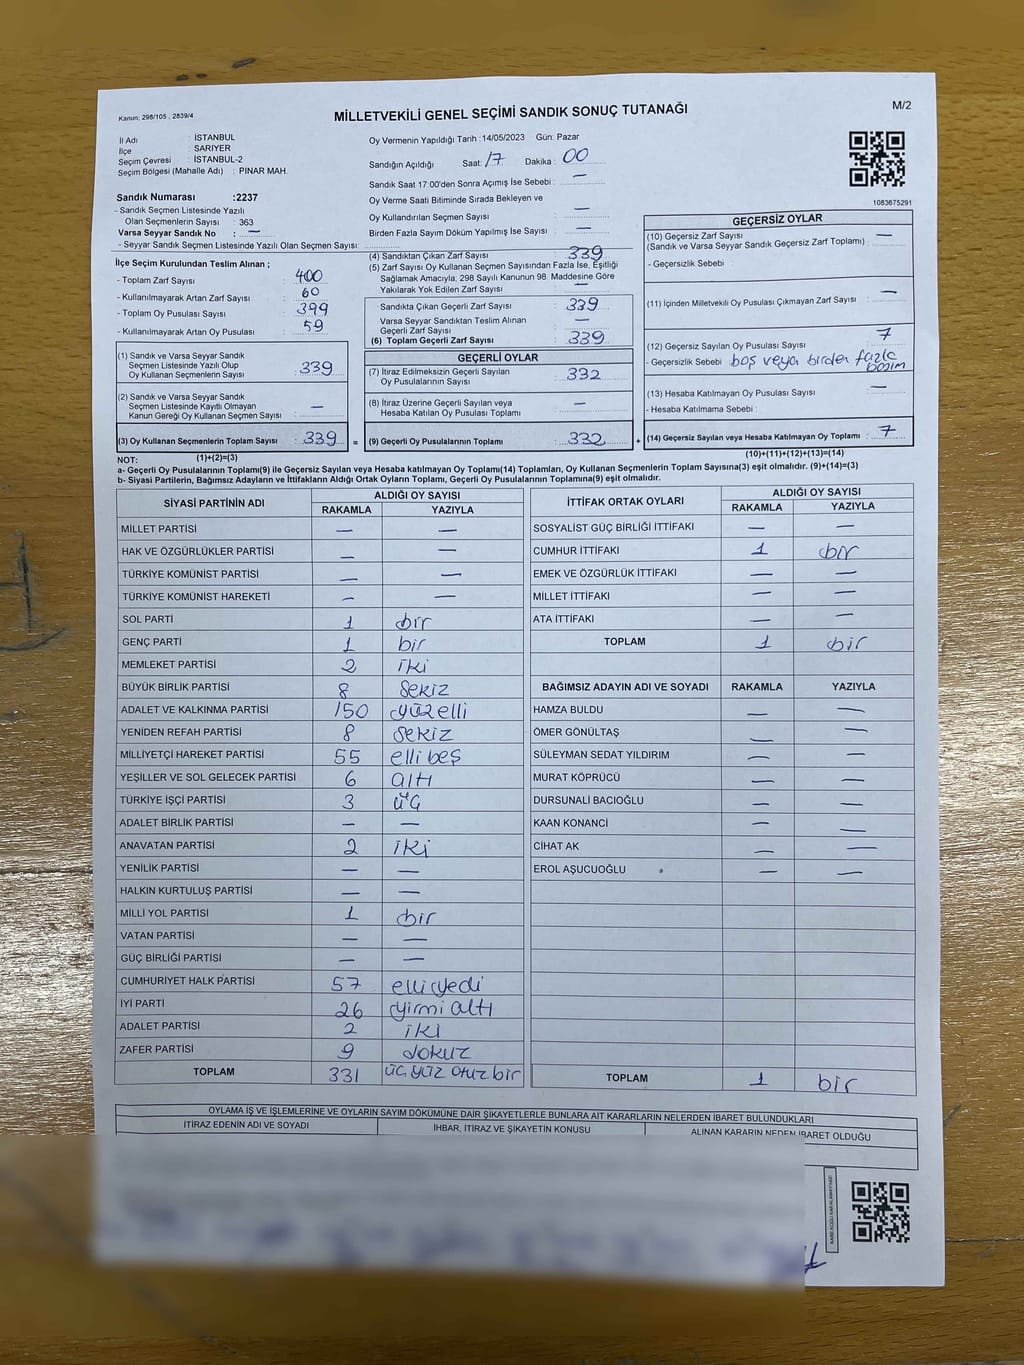 Kanun: 298/105 , 2839/4
MİLLETVEKİLİ GENEL SEÇİMİ SANDIK SONUÇ TUTANAĞI
M/2
İl Adı : İSTANBUL
İlçe : SARIYER
Seçim Çevresi : İSTANBUL-2
Seçim Bölgesi (Mahalle Adı) : PINAR MAH.
Oy Vermenin Yapıldığı Tarih : 14/05/2023 Gün: Pazar
Sandığın Açıldığı Saat: 17 Dakika : 00
Sandık Saat 17:00'den Sonra Açımış İse Sebebi : —
Oy Verme Saati Bitiminde Sırada Bekleyen ve
Oy Kullandırılan Seçmen Sayısı : —
Birden Fazla Sayım Döküm Yapılmış İse Sayısı : —
1083675291
Sandık Numarası :2237
- Sandık Seçmen Listesinde Yazılı
Olan Seçmenlerin Sayısı : 363
Varsa Seyyar Sandık No : —
- Seyyar Sandık Seçmen Listesinde Yazılı Olan Seçmen Sayısı:
İlçe Seçim Kurulundan Teslim Alınan ;
- Toplam Zarf Sayısı : 400
- Kullanılmayarak Artan Zarf Sayısı : 60
- Toplam Oy Pusulası Sayısı : 399
- Kullanılmayarak Artan Oy Pusulası : 59
(1) Sandık ve Varsa Seyyar Sandık
Seçmen Listesinde Yazılı Olup
Oy Kullanan Seçmenlerin Sayısı : 339
(2) Sandık ve Varsa Seyyar Sandık
Seçmen Listesinde Kayıtlı Olmayan
Kanun Gereği Oy Kullanan Seçmen Sayısı : —
(3) Oy Kullanan Seçmenlerin Toplam Sayısı : 339 =
(1)+(2)=(3)
(4) Sandıktan Çıkan Zarf Sayısı : 339
(5) Zarf Sayısı Oy Kullanan Seçmen Sayısından Fazla İse, Eşitliği
Sağlamak Amacıyla, 298 Sayılı Kanunun 98. Maddesine Göre
Yakılarak Yok Edilen Zarf Sayısı : —
Sandıkta Çıkan Geçerli Zarf Sayısı : 339
Varsa Seyyar Sandıktan Teslim Alınan
Geçerli Zarf Sayısı : —
(6) Toplam Geçerli Zarf Sayısı : 339
GEÇERLİ OYLAR
(7) İtiraz Edilmeksizin Geçerli Sayılan
Oy Pusulalarının Sayısı : 332
(8) İtiraz Üzerine Geçerli Sayılan veya
Hesaba Katılan Oy Pusulası Toplamı : —
(9) Geçerli Oy Pusulalarının Toplamı : 332 +
GEÇERSİZ OYLAR
(10) Geçersiz Zarf Sayısı : —
(Sandık ve Varsa Seyyar Sandık Geçersiz Zarf Toplamı)
- Geçersizlik Sebebi :
(11) İçinden Milletvekili Oy Pusulası Çıkmayan Zarf Sayısı : —
(12) Geçersiz Sayılan Oy Pusulası Sayısı : 7
- Geçersizlik Sebebi : boş veya birden fazla
basım
(13) Hesaba Katılmayan Oy Pusulası Sayısı : —
- Hesaba Katılmama Sebebi :
(14) Geçersiz Sayılan veya Hesaba Katılmayan Oy Toplamı : 7
(10)+(11)+(12)+(13)=(14)
NOT:
a- Geçerli Oy Pusulalarının Toplamı(9) ile Geçersiz Sayılan veya Hesaba katılmayan Oy Toplamı(14) Toplamları, Oy Kullanan Seçmenlerin Toplam Sayısına(3) eşit olmalıdır. (9)+(14)=(3)
b- Siyasi Partilerin, Bağımsız Adayların ve İttifakların Aldığı Ortak Oyların Toplamı, Geçerli Oy Pusulalarının Toplamına(9) eşit olmalıdır.
SİYASİ PARTİNİN ADI ALDIĞI OY SAYISI
RAKAMLA YAZIYLA
MİLLET PARTİSİ — —
HAK VE ÖZGÜRLÜKLER PARTİSİ — —
TÜRKİYE KOMÜNİST PARTİSİ — —
TÜRKİYE KOMÜNİST HAREKETİ — —
SOL PARTİ 1 bir
GENÇ PARTİ 1 bir
MEMLEKET PARTİSİ 2 iki
BÜYÜK BİRLİK PARTİSİ 8 sekiz
ADALET VE KALKINMA PARTİSİ 150 yüzelli
YENİDEN REFAH PARTİSİ 8 sekiz
MİLLİYETÇİ HAREKET PARTİSİ 55 elli beş
YEŞİLLER VE SOL GELECEK PARTİSİ 6 altı
TÜRKİYE İŞÇİ PARTİSİ 3 üç
ADALET BİRLİK PARTİSİ — —
ANAVATAN PARTİSİ 2 iki
YENİLİK PARTİSİ — —
HALKIN KURTULUŞ PARTİSİ — —
MİLLİ YOL PARTİSİ 1 bir
VATAN PARTİSİ — —
GÜÇ BİRLİĞİ PARTİSİ — —
CUMHURİYET HALK PARTİSİ 57 elli yedi
İYİ PARTİ 26 yirmi altı
ADALET PARTİSİ 2 iki
ZAFER PARTİSİ 9 dokuz
TOPLAM 331 üç yüz otuz bir
İTTİFAK ORTAK OYLARI ALDIĞI OY SAYISI
RAKAMLA YAZIYLA
SOSYALİST GÜÇ BİRLİĞİ İTTİFAKI — —
CUMHUR İTTİFAKI 1 bir
EMEK VE ÖZGÜRLÜK İTTİFAKI — —
MİLLET İTTİFAKI — —
ATA İTTİFAKI — —
TOPLAM 1 bir
BAĞIMSIZ ADAYIN ADI VE SOYADI RAKAMLA YAZIYLA
HAMZA BULDU — —
ÖMER GÖNÜLTAŞ — —
SÜLEYMAN SEDAT YILDIRIM — —
MURAT KÖPRÜCÜ — —
DURSUNALİ BACIOĞLU — —
KAAN KONANCİ — —
CİHAT AK — —
EROL AŞUCUOĞLU — —
TOPLAM 1 bir
OYLAMA İŞ VE İŞLEMLERİNE VE OYLARIN SAYIM DÖKÜMÜNE DAİR ŞİKAYETLERLE BUNLARA AİT KARARLARIN NELERDEN İBARET BULUNDUKLARI
İTİRAZ EDENİN ADI VE SOYADI İHBAR, İTİRAZ VE ŞİKAYETİN KONUSU ALINAN KARARIN NEDEN İBARET OLDUĞU